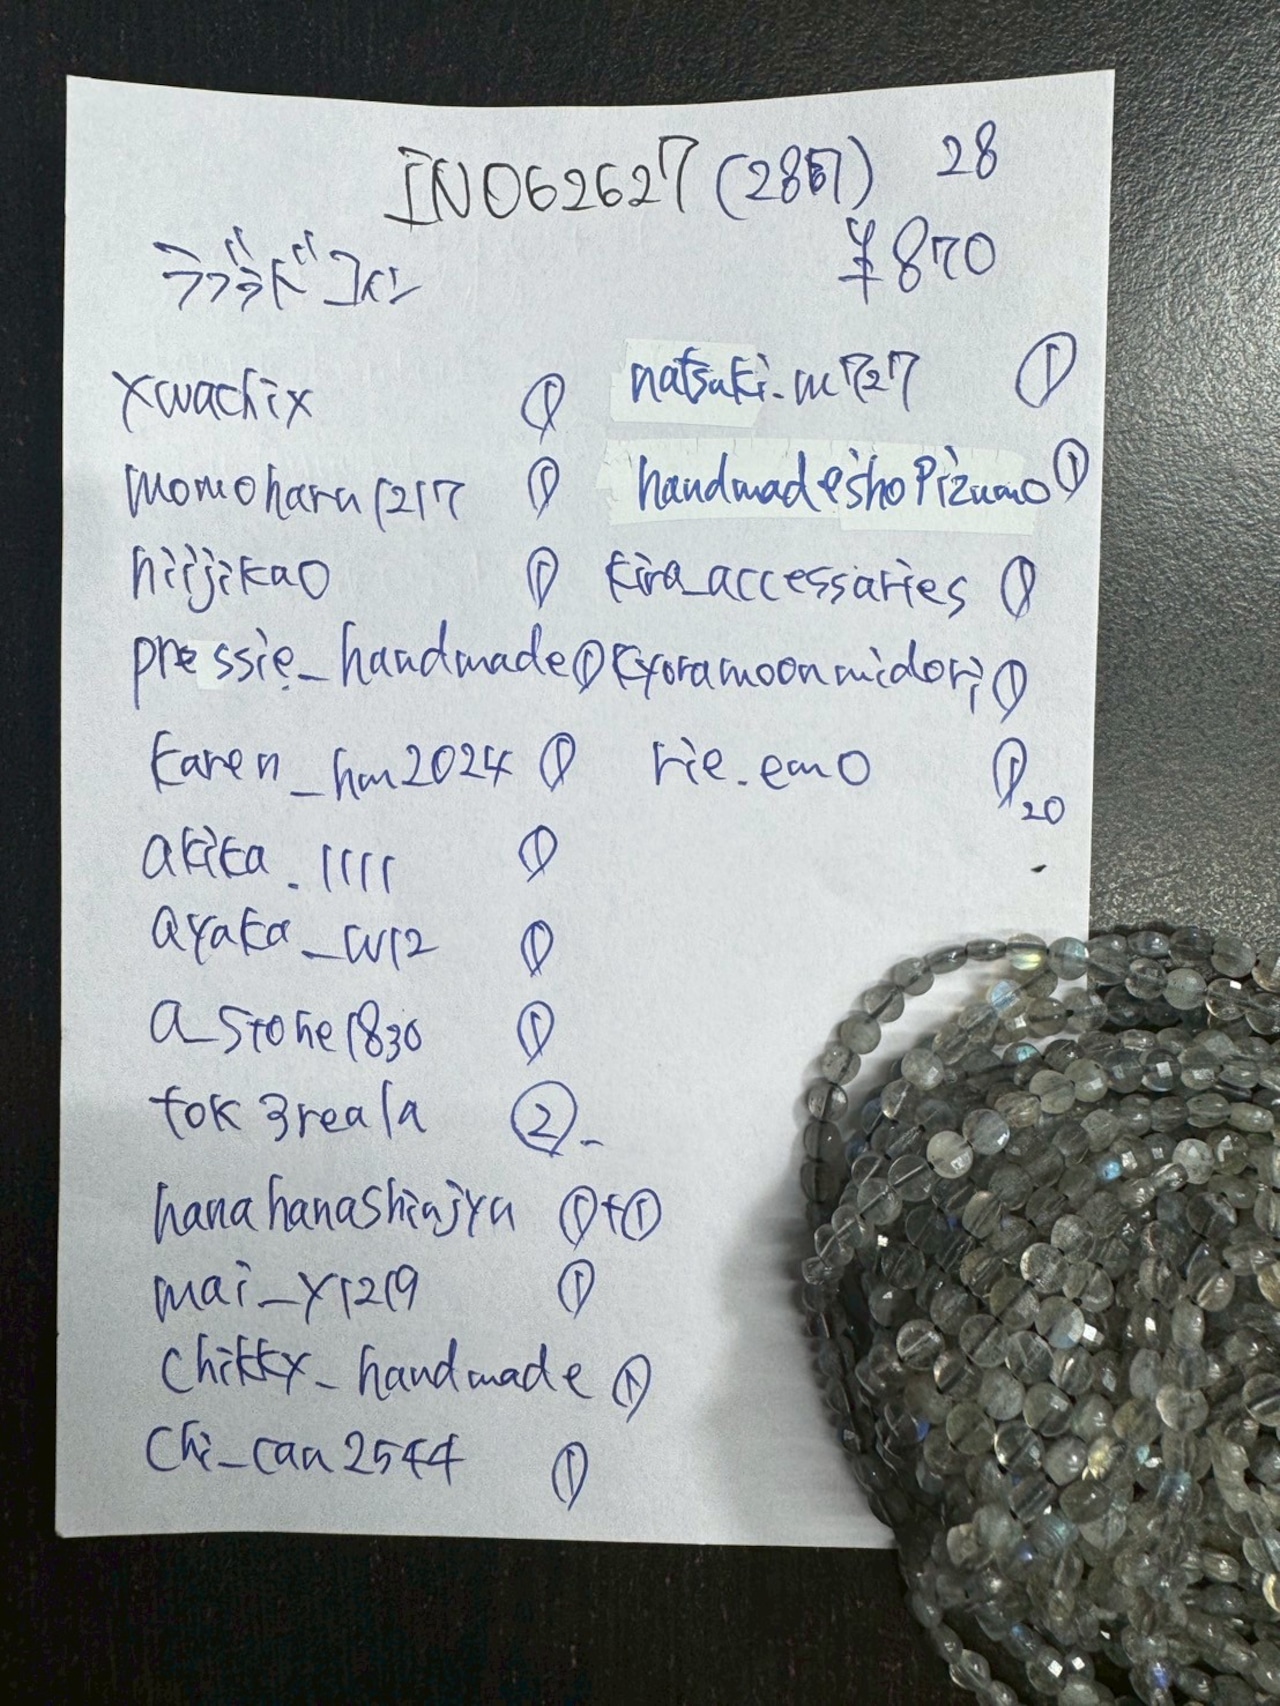 INO62627 (2867) 28
ラブラドコイン ¥870
xwachix ①
momoharu1217 ①
hiijika0 ①
pressie_handmade ①
karen_hm2024 ①
akika.1111 ①
ayaka_w12 ①
a_stone1830 ①
tok3reala ②-
hanahanashinjyu ①+①
mai_y1219 ①
chikky_handmade ①
chi_can2544 ①
natsuki.m727 ①
handmadeshopizumo ①
kira_accessaries ①
kyoramoonmidori ①
rie.emo ①
20